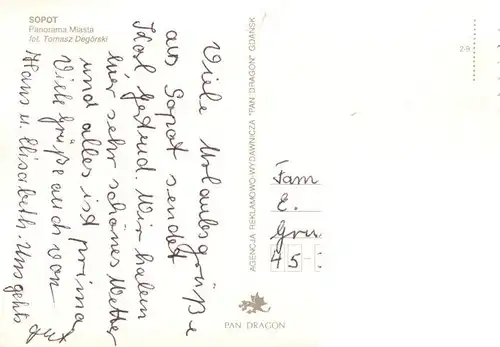 SOPOT
Panorama Miasta
fot. Tomasz Degórski
Viele Urlaubsgrüße
aus Sopot sendet
Karl Gertrud. Wir haben
hier sehr schönes Wetter
und alles ist prima
Viele Grüße auch von
Hans u. Elisabeth. Uns gehts gut
AGENCJA REKLAMOWO-WYDAWNICZA "PAN DRAGON" GDAŃSK
PAN DRAGON
2-9
Fam
E.
Gru
45-